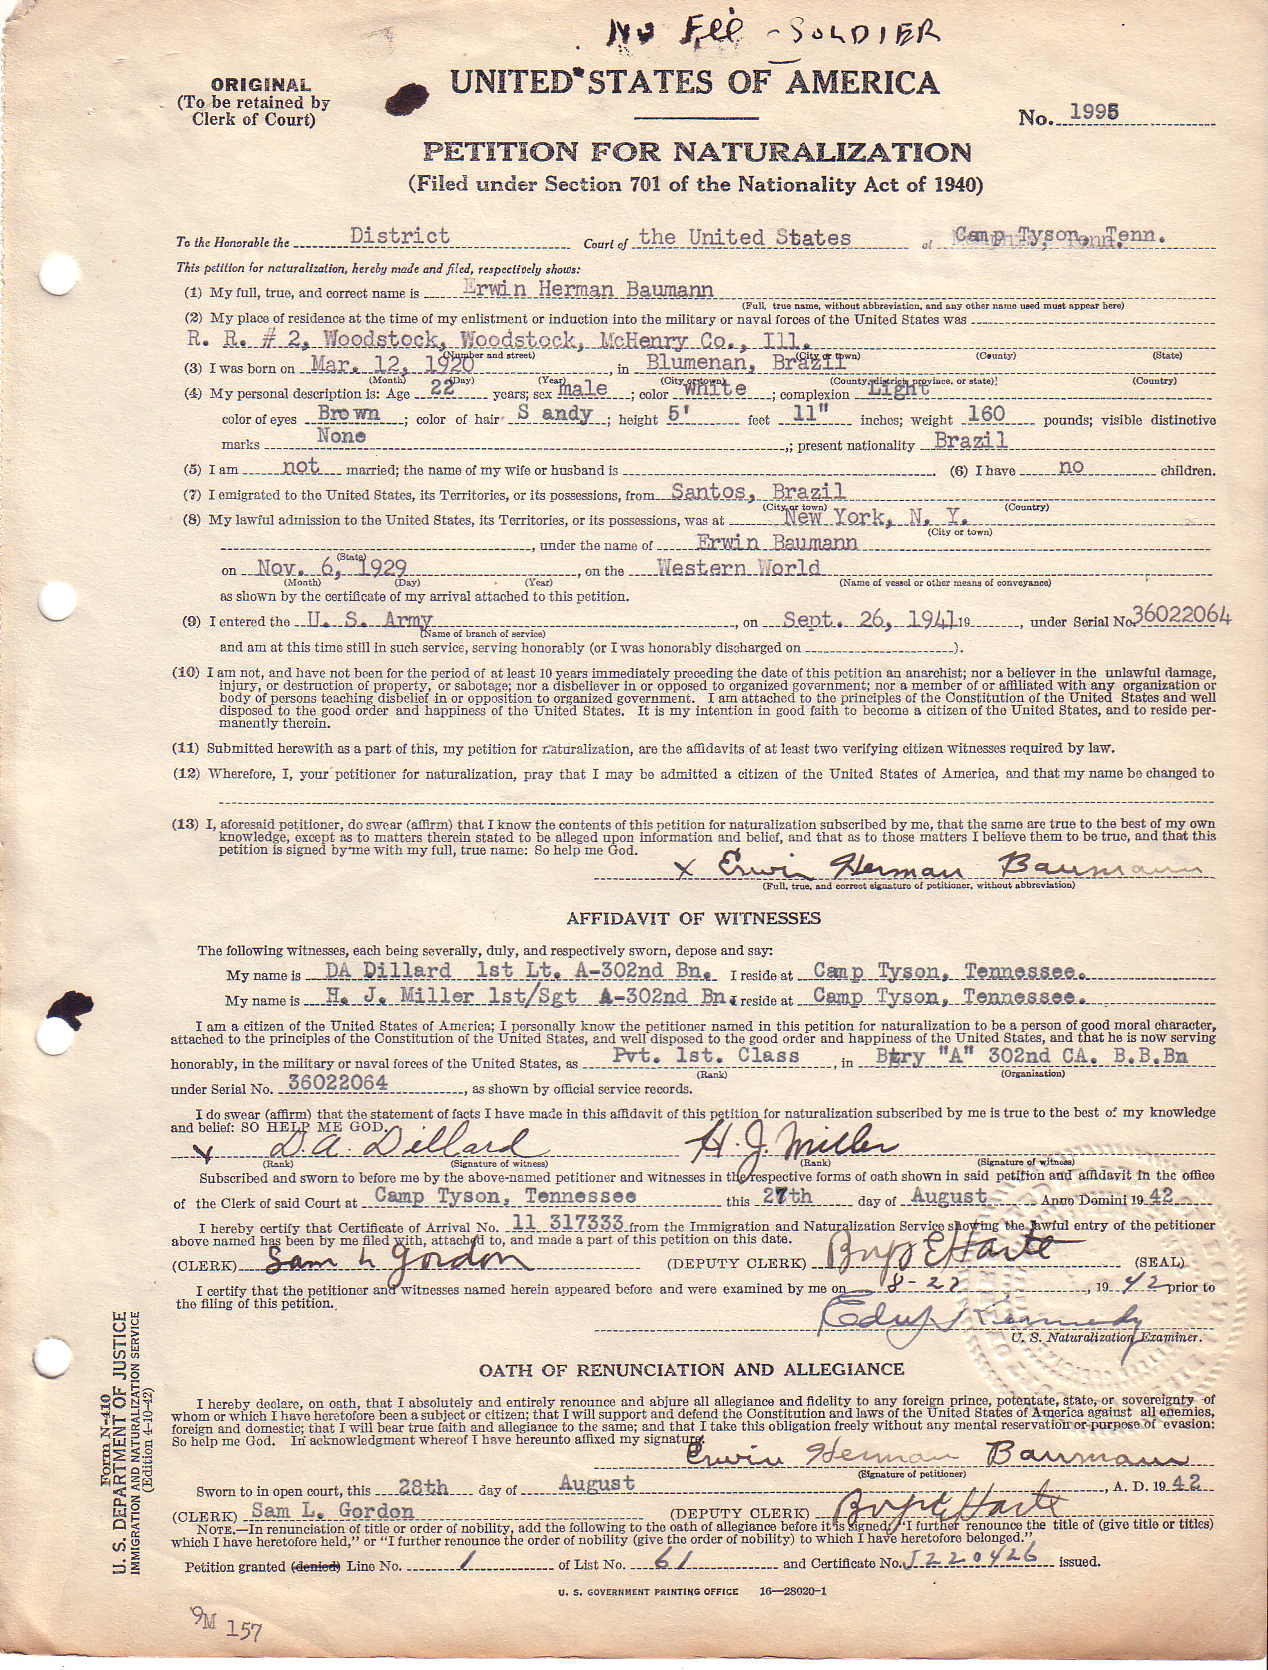 No Fee - SOLDIER
ORIGINAL
(To be retained by
Clerk of Court)
UNITED STATES OF AMERICA
No. 1995
PETITION FOR NATURALIZATION
(Filed under Section 701 of the Nationality Act of 1940)
To the Honorable the District Court of the United States at Camp Tyson, Tenn.
This petition for naturalization, hereby made and filed, respectively shows:
(1) My full, true, and correct name is Erwin Herman Baumann
(Full, true name, without abbreviation, and any other name used must appear here)
(2) My place of residence at the time of my enlistment or induction into the military or naval forces of the United States was
R. R. # 2, Woodstock, Woodstock, McHenry Co., Ill.
(Number and street) (City or town) (County) (State)
(3) I was born on Mar. 12, 1920, in Blumenan, Brazil
(Month) (Day) (Year) (City or town) (County, district, province, or state) (Country)
(4) My personal description is: Age 22 years; sex male; color White; complexion Light
color of eyes Brown; color of hair S andy; height 5' feet 11" inches; weight 160 pounds; visible distinctive
marks None; present nationality Brazil
(5) I am not married; the name of my wife or husband is (6) I have no children.
(7) I emigrated to the United States, its Territories, or its possessions, from Santos, Brazil
(City or town) (Country)
(8) My lawful admission to the United States, its Territories, or its possessions, was at New York, N. Y.
(City or town)
, under the name of Erwin Baumann
(State)
on Nov. 6, 1929, on the Western World
(Month) (Day) (Year) (Name of vessel or other means of conveyance)
as shown by the certificate of my arrival attached to this petition.
(9) I entered the U. S. Army, on Sept. 26, 1941 19, under Serial No. 36022064
(Name of branch of service)
and am at this time still in such service, serving honorably (or I was honorably discharged on ).
(10) I am not, and have not been for the period of at least 10 years immediately preceding the date of this petition an anarchist; nor a believer in the unlawful damage,
injury, or destruction of property, or sabotage; nor a disbeliever in or opposed to organized government; nor a member of or affiliated with any organization or
body of persons teaching disbelief in or opposition to organized government. I am attached to the principles of the Constitution of the United States and well
disposed to the good order and happiness of the United States. It is my intention in good faith to become a citizen of the United States, and to reside per-
manently therein.
(11) Submitted herewith as a part of this, my petition for naturalization, are the affidavits of at least two verifying citizen witnesses required by law.
(12) Wherefore, I, your petitioner for naturalization, pray that I may be admitted a citizen of the United States of America, and that my name be changed to
(13) I, aforesaid petitioner, do swear (affirm) that I know the contents of this petition for naturalization subscribed by me, that the same are true to the best of my own
knowledge, except as to matters therein stated to be alleged upon information and belief, and that as to those matters I believe them to be true, and that this
petition is signed by me with my full, true name: So help me God.
X Erwin Herman Baumann
(Full, true, and correct signature of petitioner, without abbreviation)
AFFIDAVIT OF WITNESSES
The following witnesses, each being severally, duly, and respectively sworn, depose and say:
My name is DA Dillard 1st Lt. A-302nd Bn. I reside at Camp Tyson, Tennessee.
My name is H. J. Miller 1st/Sgt A-302nd Bn. I reside at Camp Tyson, Tennessee.
I am a citizen of the United States of America; I personally know the petitioner named in this petition for naturalization to be a person of good moral character,
attached to the principles of the Constitution of the United States, and well disposed to the good order and happiness of the United States, and that he is now serving
honorably, in the military or naval forces of the United States, as Pvt. 1st. Class, in Btry "A" 302nd CA. B.B.Bn
(Rank) (Organization)
under Serial No. 36022064, as shown by official service records.
I do swear (affirm) that the statement of facts I have made in this affidavit of this petition for naturalization subscribed by me is true to the best of my knowledge
and belief: SO HELP ME GOD.
D. A. Dillard H. J. Miller
(Rank) (Signature of witness) (Rank) (Signature of witness)
Subscribed and sworn to before me by the above-named petitioner and witnesses in the respective forms of oath shown in said petition and affidavit in the office
of the Clerk of said Court at Camp Tyson, Tennessee this 27th day of August Anno Domini 19 42
I hereby certify that Certificate of Arrival No. 11 317333 from the Immigration and Naturalization Service showing the lawful entry of the petitioner
above named has been by me filed with, attached to, and made a part of this petition on this date.
(CLERK) Sam L Gordon (DEPUTY CLERK) (SEAL)
I certify that the petitioner and witnesses named herein appeared before and were examined by me on 8-27, 19 42 prior to
the filing of this petition.
Kennedy
U. S. Naturalization Examiner.
OATH OF RENUNCIATION AND ALLEGIANCE
I hereby declare, on oath, that I absolutely and entirely renounce and abjure all allegiance and fidelity to any foreign prince, potentate, state, or sovereignty of
whom or which I have heretofore been a subject or citizen; that I will support and defend the Constitution and laws of the United States of America against all enemies,
foreign and domestic; that I will bear true faith and allegiance to the same; and that I take this obligation freely without any mental reservation or purpose of evasion:
So help me God. In acknowledgment whereof I have hereunto affixed my signature.
Erwin Herman Baumann
(Signature of petitioner)
Sworn to in open court, this 28th day of August, A. D. 19 42
(CLERK) Sam L. Gordon (DEPUTY CLERK)
NOTE.—In renunciation of title or order of nobility, add the following to the oath of allegiance before it is signed: "I further renounce the title of (give title or titles)
which I have heretofore held," or "I further renounce the order of nobility (give the order of nobility) to which I have heretofore belonged."
Petition granted (denied) Line No. 1 of List No. 61 and Certificate No. 5220426 issued.
U. S. GOVERNMENT PRINTING OFFICE 16—28020-1
Form N-410
U. S. DEPARTMENT OF JUSTICE
IMMIGRATION AND NATURALIZATION SERVICE
(Edition 4-10-42)
9M 157